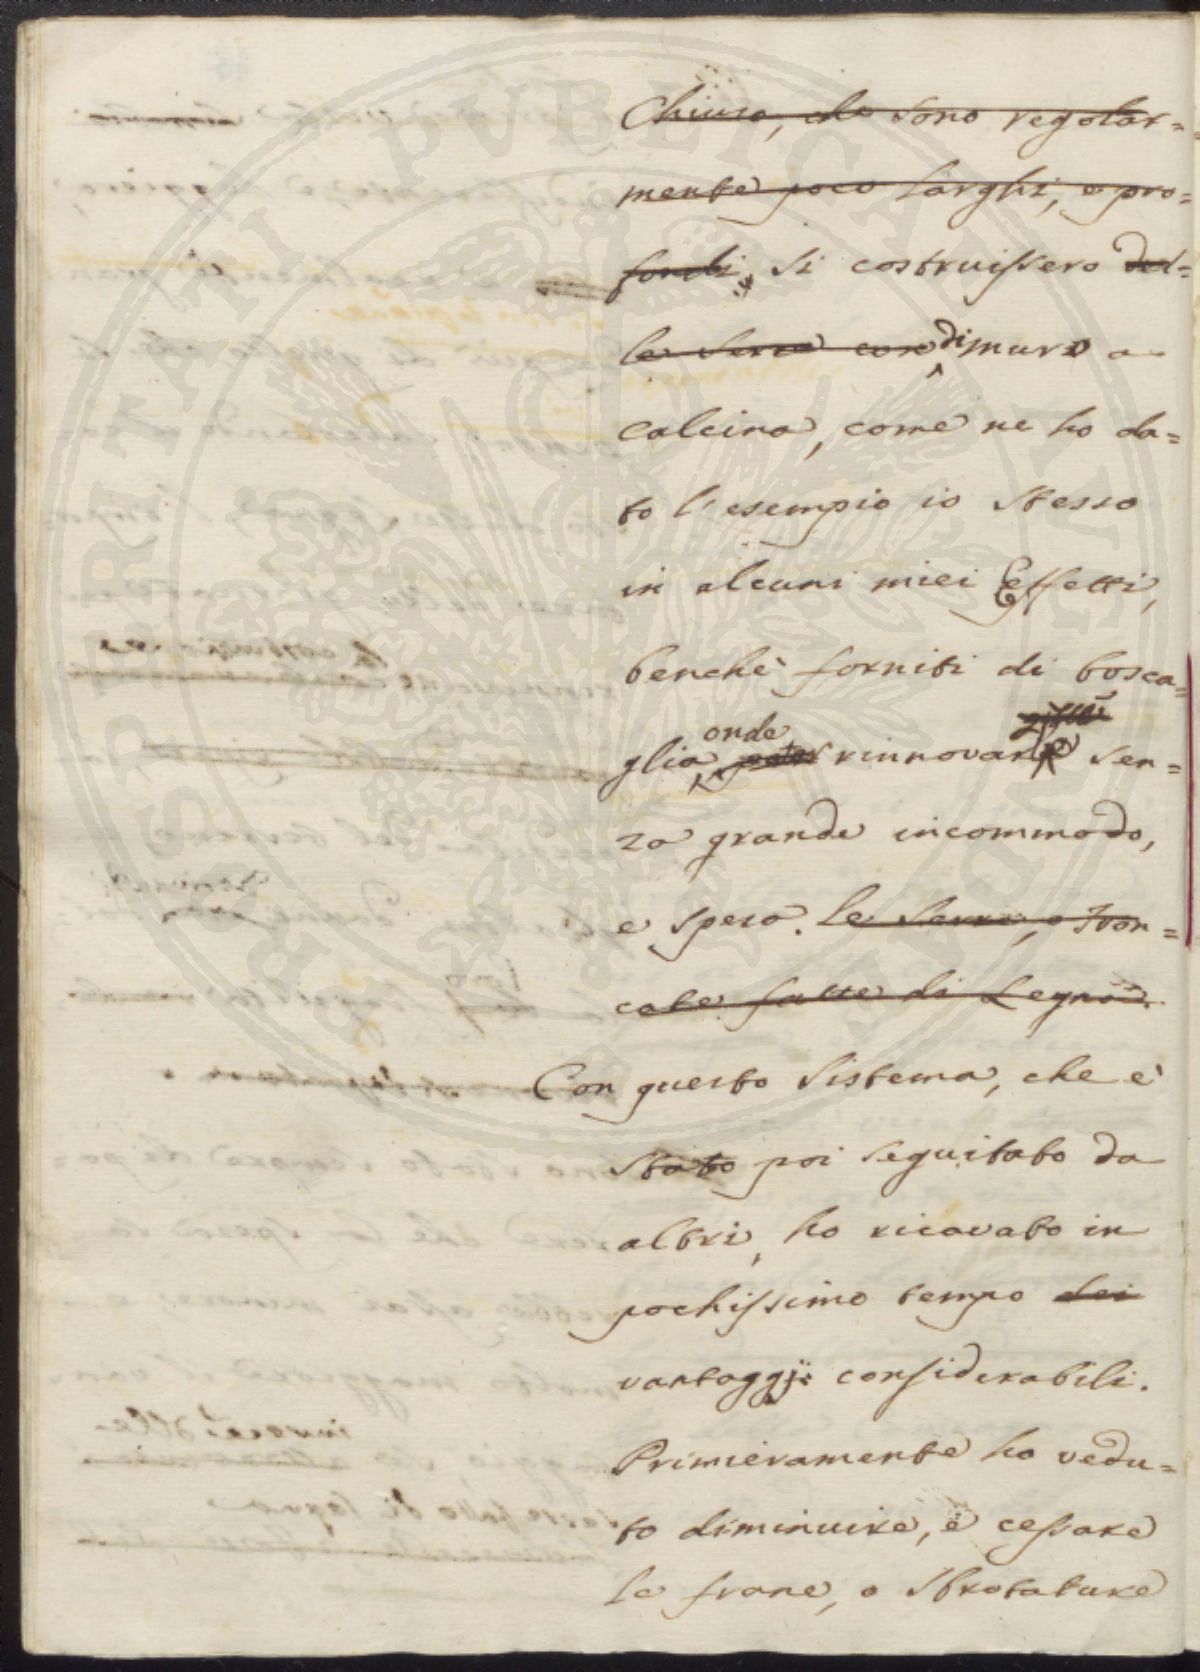 Chiuse, che sono regolar=
mente poco larghi, e pro=
fondi, si costruissero del=
le Serre con di muro a
calcina, come ne ho da=
to l'esempio io stesso
in alcuni miei Effetti,
benchè forniti di bosca=
onde
glia poter rinnovare sen=
za grande incommodo,
e spesa. le Serre, o Tron=
cate fatte di Legno.
Con questo sistema, che è
stato poi seguitato da
altri, ho ricavato in
pochissimo tempo dei
vantaggj considerabili.
Primieramente ho vedu=
to diminuire, e cessare
le frane, o sbrotature
PROSPERITATI PVBLICAE